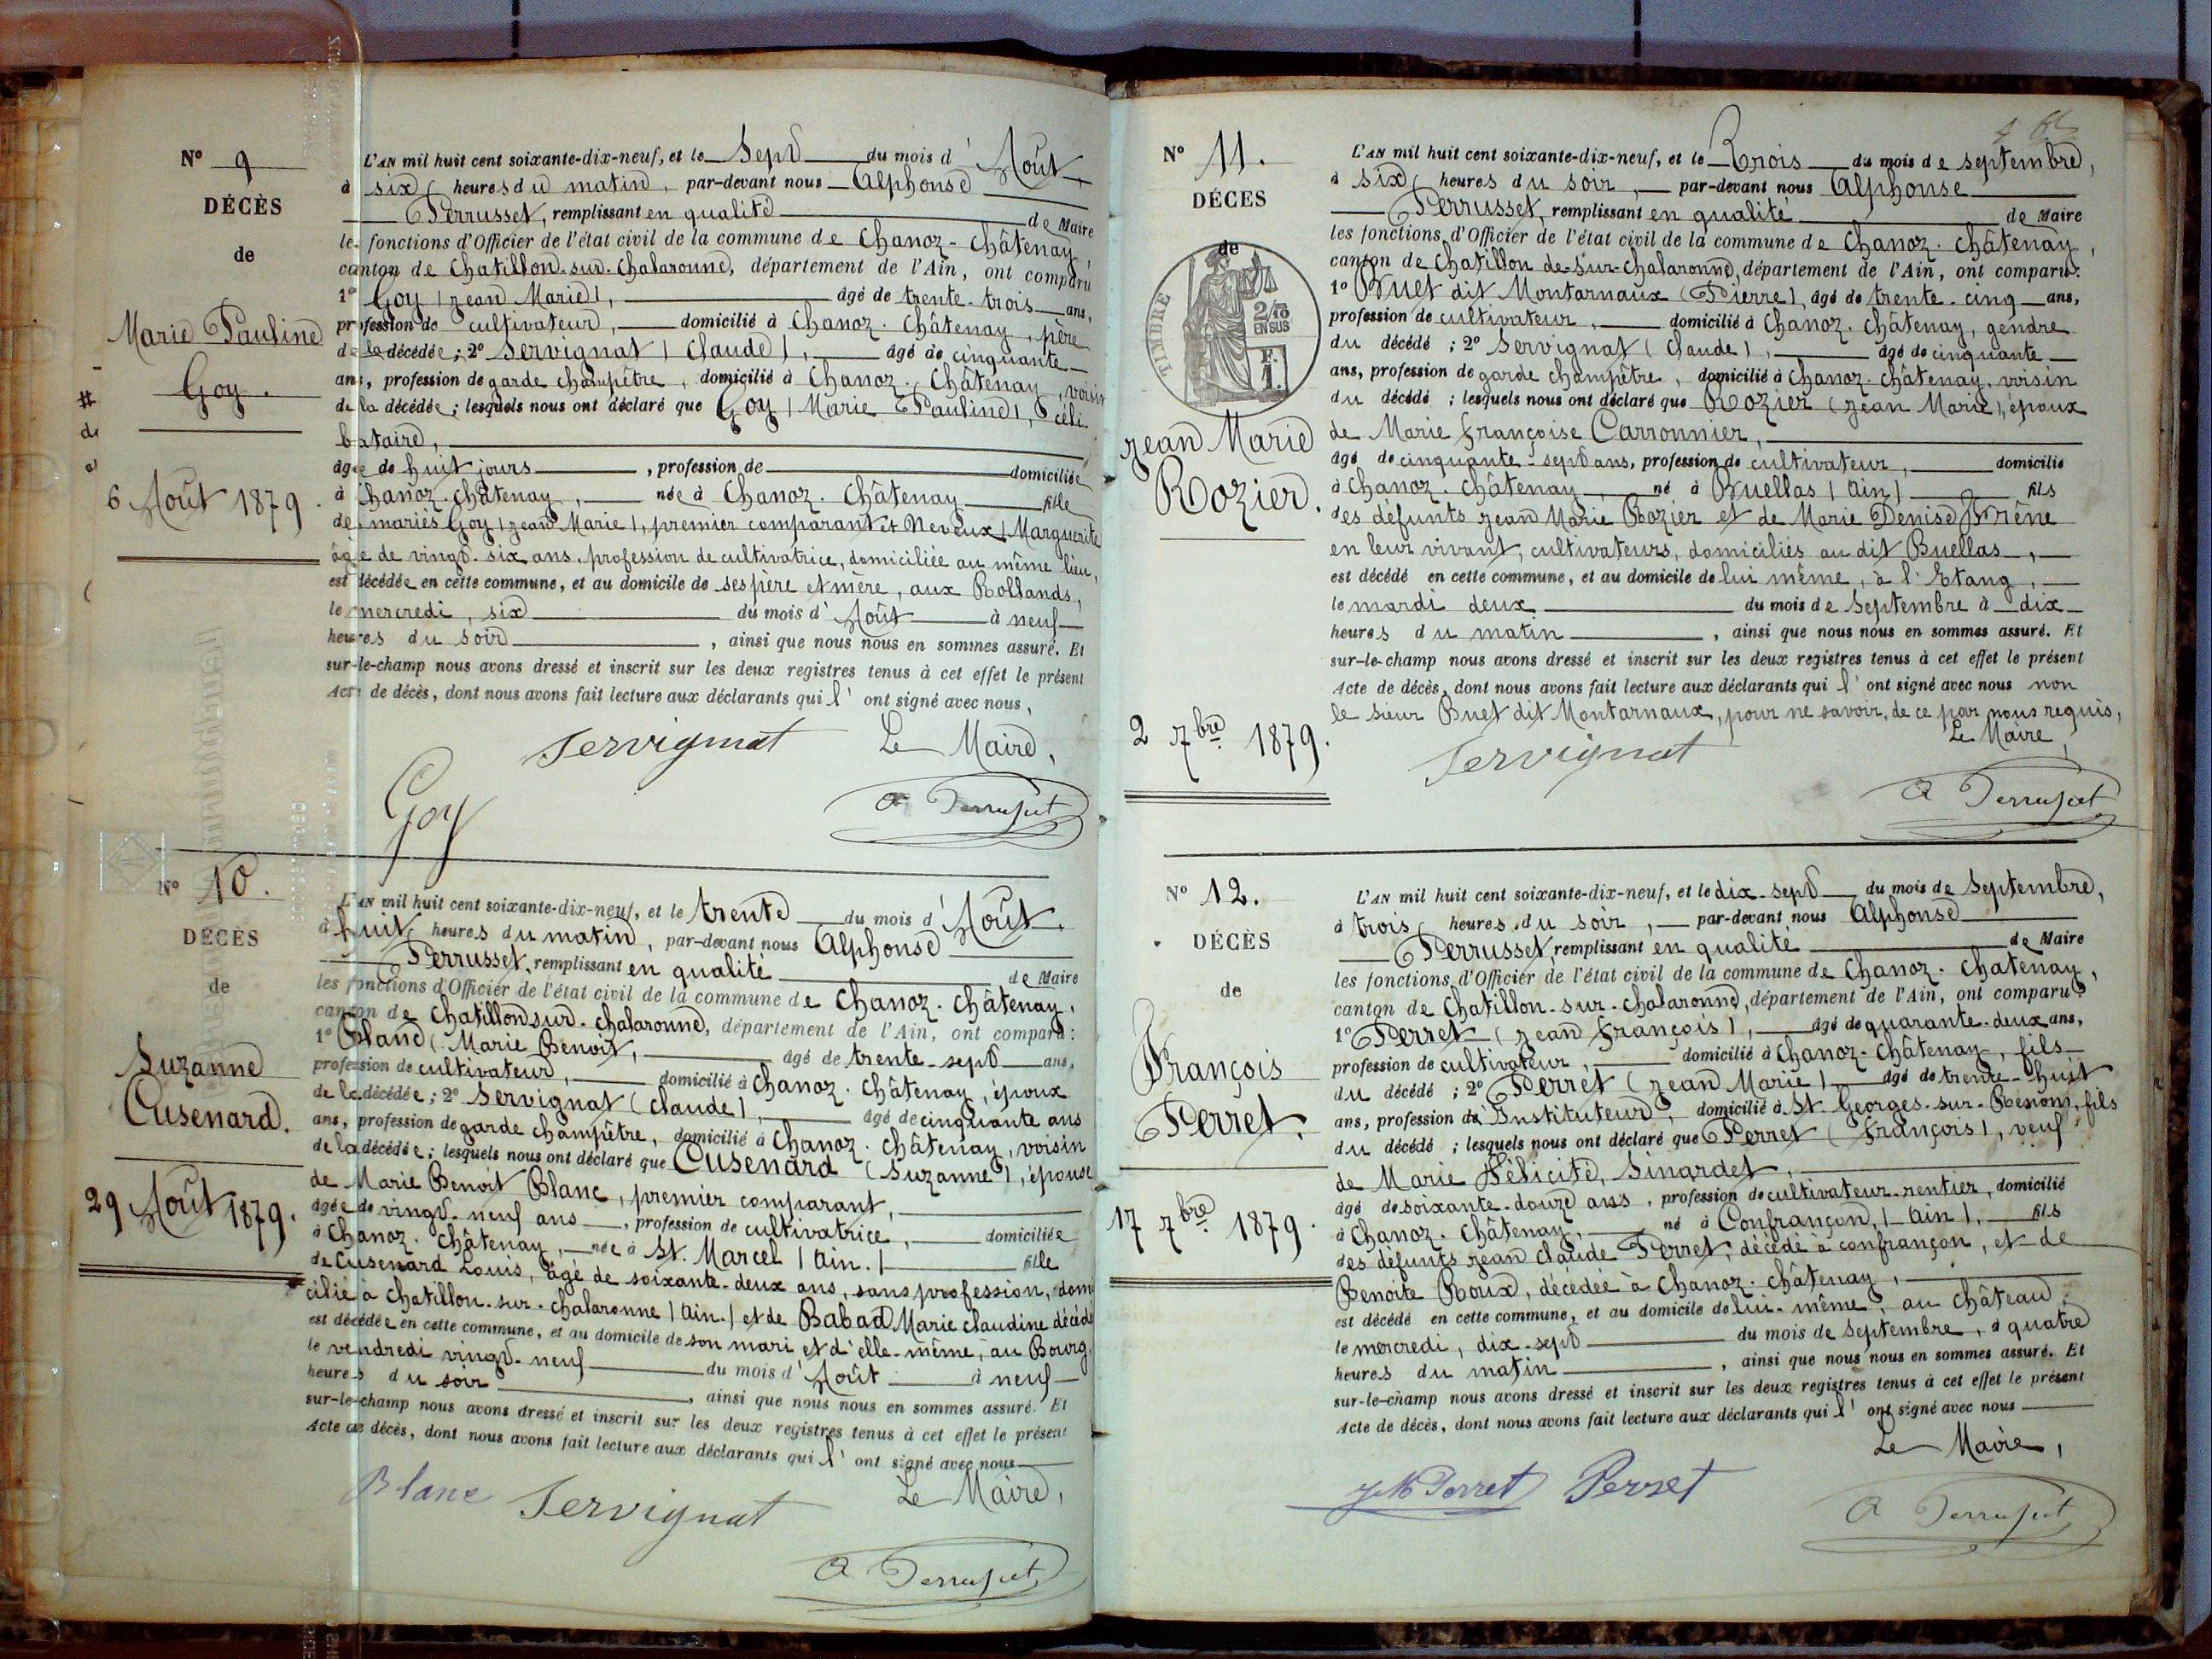 N° 9
DÉCÈS
de
Marie Pauline
Goy.
6 Août 1879.
L'AN mil huit cent soixante-dix-neuf, et le Sept du mois d'Août,
à six heures du matin, par-devant nous Alphonse
Perrusset, remplissant en qualité de Maire
les fonctions d'Officier de l'état civil de la commune de Chanoz-Châtenay,
canton de Chatillon-sur-Chalaronne, département de l'Ain, ont comparu
1° Goy (Jean Marie), âgé de trente-trois ans,
profession de cultivateur, domicilié à Chanoz-Châtenay, père
de la décédée; 2° Servignat (Claude), âgé de cinquante
ans, profession de garde champêtre, domicilié à Chanoz-Châtenay, voisin
de la décédée; lesquels nous ont déclaré que Goy (Marie Pauline), céli-
bataire,
âgée de huit jours, profession de domiciliée
à Chanoz-Châtenay, née à Chanoz-Châtenay fille
de mariés Goy (Jean Marie), premier comparant et Neveux (Marguerite
âgée de vingt-six ans, profession de cultivatrice, domiciliée au même lieu,
est décédée en cette commune, et au domicile de ses père et mère, aux Rollands,
le mercredi, six du mois d'Août à neuf
heures du soir, ainsi que nous nous en sommes assuré. Et
sur-le-champ nous avons dressé et inscrit sur les deux registres tenus à cet effet le présent
Acte de décès, dont nous avons fait lecture aux déclarants qui l'ont signé avec nous,
Servignat Le Maire,
Goy A Perrusset
N° 10.
DÉCÈS
de
Suzanne
Cusenard.
29 Août 1879.
L'AN mil huit cent soixante-dix-neuf, et le trente du mois d'Août,
à huit heures du matin, par-devant nous Alphonse
Perrusset, remplissant en qualité de Maire
les fonctions d'Officier de l'état civil de la commune de Chanoz-Châtenay,
canton de Chatillon sur-Chalaronne, département de l'Ain, ont comparu:
1° Blanc (Marie Benoit, âgé de trente-sept ans,
profession de cultivateur, domicilié à Chanoz-Châtenay, époux
de la décédée; 2° Servignat (Claude), âgé de cinquante ans
ans, profession de garde champêtre, domicilié à Chanoz-Châtenay, voisin
de la décédée; lesquels nous ont déclaré que Cusenard (Suzanne), épouse
de Marie Benoit Blanc, premier comparant,
âgée de vingt-neuf ans, profession de cultivatrice, domiciliée
à Chanoz-Châtenay, née à St. Marcel (Ain.) fille
de Cusenard Louis, âgé de soixante-deux ans, sans profession, domi
cilié à Chatillon-sur-Chalaronne (Ain.) et de Babad Marie Claudine décédé
est décédée en cette commune, et au domicile de son mari et d'elle-même, au Bourg,
le vendredi vingt-neuf du mois d'Août à neuf
heures du soir, ainsi que nous nous en sommes assuré. Et
sur-le-champ nous avons dressé et inscrit sur les deux registres tenus à cet effet le présent
Acte de décès, dont nous avons fait lecture aux déclarants qui l'ont signé avec nous
Blanc Servignat Le Maire,
A Perrusset
N° 11.
DÉCÈS
de
TIMBRE
2/10
EN SUS
F.
1.
Jean Marie
Rozier.
2 7bre 1879.
L'AN mil huit cent soixante-dix-neuf, et le Trois du mois de septembre,
à six heures du soir, par-devant nous Alphonse
Perrusset, remplissant en qualité de Maire
les fonctions d'Officier de l'état civil de la commune de Chanoz-Châtenay,
canton de Chatillon de-sur-Chalaronne, département de l'Ain, ont comparu:
1° Buet dit Montarnaux (Pierre), âgé de trente-cinq ans,
profession de cultivateur, domicilié à Chanoz-Châtenay, gendre
du décédé; 2° Servignat (Claude), âgé de cinquante
ans, profession de garde champêtre, domicilié à Chanoz-Châtenay, voisin
du décédé; lesquels nous ont déclaré que Rozier (Jean Marie), époux
de Marie Françoise Carronnier,
âgé de cinquante-sept ans, profession de cultivateur, domicilié
à Chanoz-Châtenay, né à Buellas (Ain) fils
des défunts Jean Marie Rozier et de Marie Denise
en leur vivant, cultivateurs, domiciliés au dit Buellas,
est décédé en cette commune, et au domicile de lui même, à l'Etang,
le mardi deux du mois de Septembre à dix
heures du matin, ainsi que nous nous en sommes assuré. Et
sur-le-champ nous avons dressé et inscrit sur les deux registres tenus à cet effet le présent
Acte de décès, dont nous avons fait lecture aux déclarants qui l'ont signé avec nous non
le sieur Buet dit Montarnaux, pour ne savoir, de ce par nous requis,
Le Maire,
Servignat
A Perrusset
N° 12.
DÉCÈS
de
François
Perret.
17 7bre 1879.
L'AN mil huit cent soixante-dix-neuf, et le dix-sept du mois de Septembre,
à trois heures du soir, par-devant nous Alphonse
Perrusset, remplissant en qualité de Maire
les fonctions d'Officier de l'état civil de la commune de Chanoz-Chatenay,
canton de Chatillon-sur-Chalaronne, département de l'Ain, ont comparu:
1° Perret (Jean François), âgé de quarante-deux ans,
profession de cultivateur, domicilié à Chanoz-Châtenay, fils
du décédé; 2° Perret (Jean Marie) âgé de trente-huit
ans, profession de Instituteur, domicilié à St. Georges-sur-Renom, fils
du décédé; lesquels nous ont déclaré que Perret (François), veuf
de Marie Félicité, Sinardet,
âgé de soixante-douze ans, profession de cultivateur-rentier, domicilié
à Chanoz-Châtenay, né à Confrançon, (Ain), fils
des défunts Jean Claude Perret, décédé à Confrançon, et de
Benoite Roux, décédée à Chanoz-Châtenay,
est décédé en cette commune, et au domicile de lui-même, au Château,
le mercredi, dix-sept du mois de Septembre, à quatre
heures du matin, ainsi que nous nous en sommes assuré. Et
sur-le-champ nous avons dressé et inscrit sur les deux registres tenus à cet effet le présent
Acte de décès, dont nous avons fait lecture aux déclarants qui l'ont signé avec nous
Le Maire,
J M Perret Perret
A Perrusset